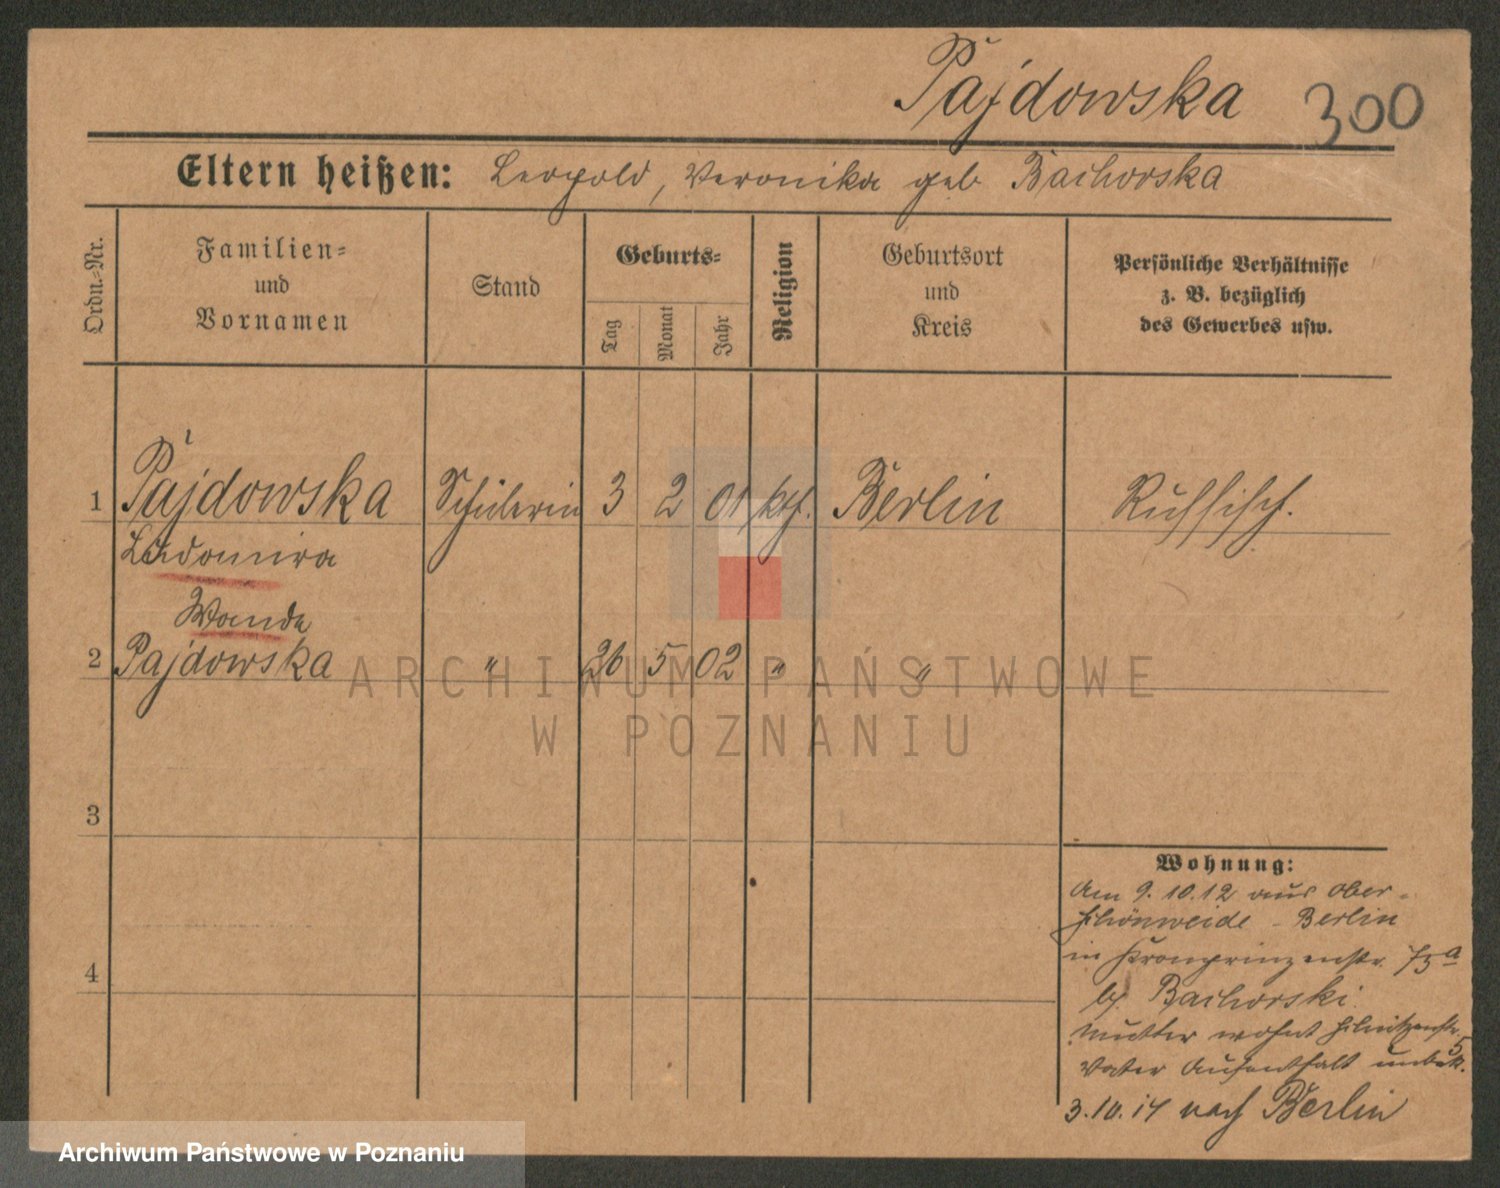 Pajdowska 300
Eltern heißen: Leopold, Veronika geb Bachorska
Ordn.-Nr.
Familien-
und
Vornamen
Stand
Geburts-
Tag
Monat
Jahr
Religion
Geburtsort
und
Kreis
Persönliche Verhältnisse
z. B. bezüglich
des Gewerbes usw.
1 Pajdowska Schülerin 3 2 01 kth. Berlin Russisch.
Ladomira
Wanda
2 Pajdowska " 26 5 02 " "
3
4
Wohnung:
Am 9.10.12 aus Ober-
schönweide - Berlin
in Kronprinzenstr. 73a
b/ Bachorski.
Mutter wohnt
5
Vater Aufenthalt unbek.
3.10.14 nach Berlin
ARCHIWUM PAŃSTWOWE
W POZNANIU
Archiwum Państwowe w Poznaniu